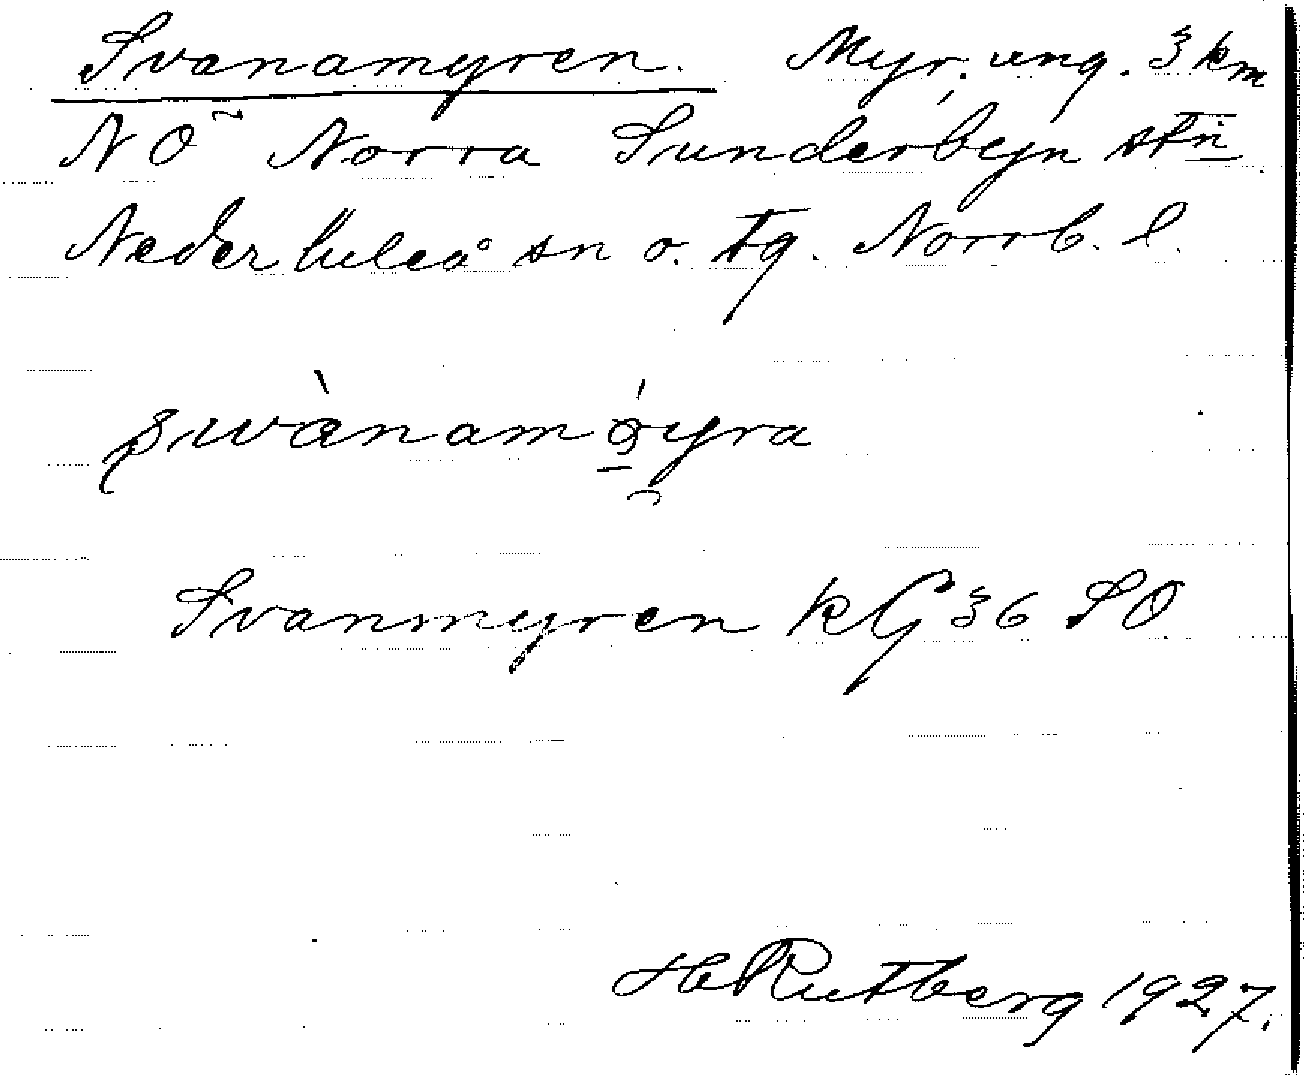 Svanamyren. Myr, ung. 3 km
NO Norra Sunderbyn stn
Nederluleå sn o. tg. Norrb. l.
swànamö́yra
Svanmyren kG 36 SO
H Rutberg 1927.